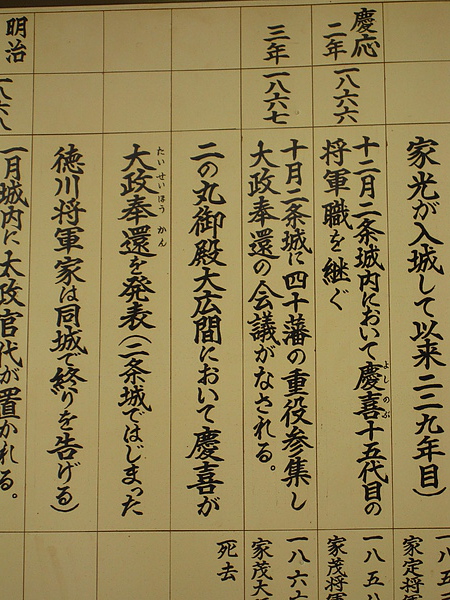 家光が入城して以来二二九年目)
慶応
二年
一八六六
十二月二条城内において慶喜十五代目の
よしのぶ
将軍職を継ぐ
三年
一八六七
十月二条城に四十藩の重役参集し
大政奉還の会議がなされる。
二の丸御殿大広間において慶喜が
大政奉還を発表(二条城ではじまった
たいせいほうかん
徳川将軍家は同城で終りを告げる)
明治
一月城内に太政官代が置かれる。
家定将軍
一八五八
家茂将軍
一八六六
家茂大
死去